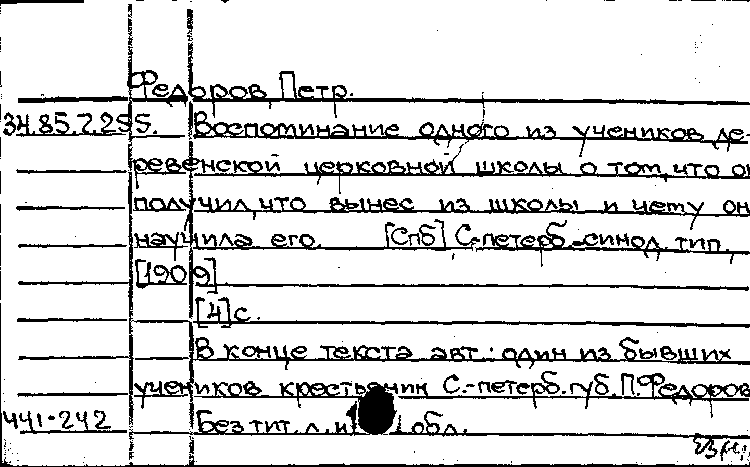 Федоров, Петр.
34.85.7.255. Воспоминание одного из учеников де-
ревенской церковной школы о том, что он
получил, что вынес из школы и чему она
научила его. [Спб] С.-петерб. синод. тип.,
[1909]
[4]с.
В конце текста авт.: один из бывших
учеников крестьянин С.-петерб. губ. П. Федоров
441-242 Без тит. л. и обл.